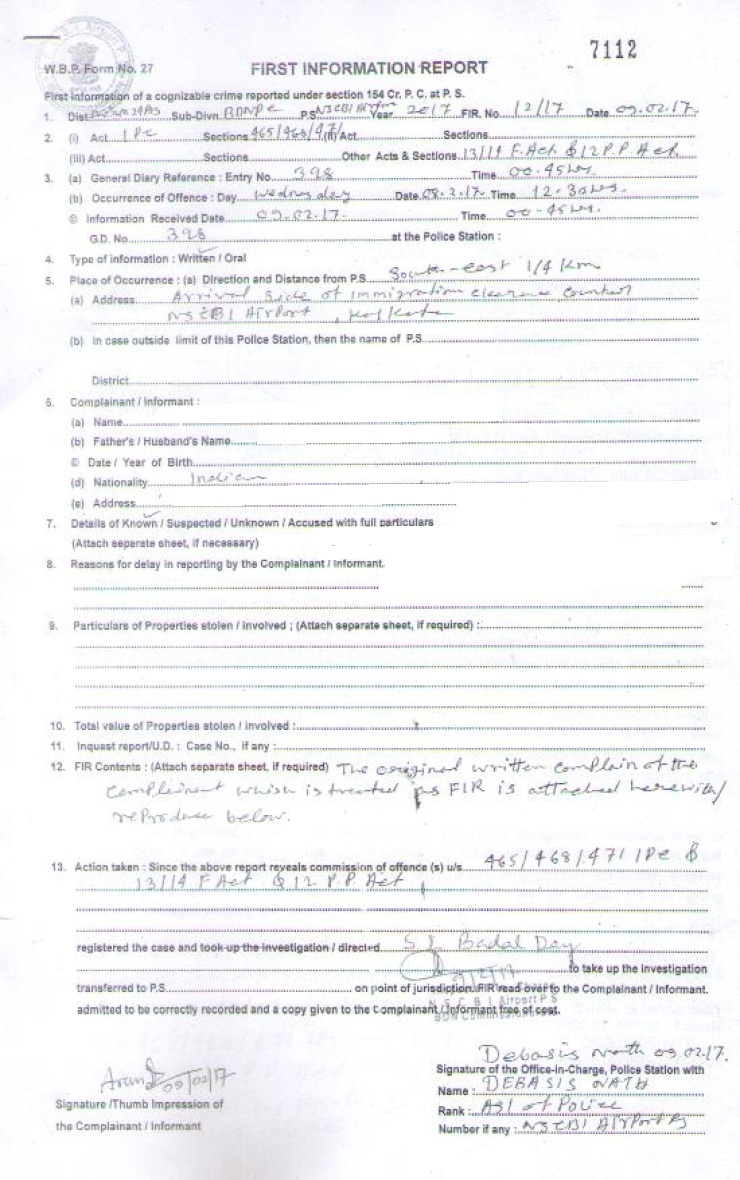 7112
W.B.P. Form No. 27 FIRST INFORMATION REPORT
First information of a cognizable crime reported under section 154 Cr. P. C. at P. S.
1. Dist. 24 PGS Sub-Divn. BDNPC P.S. NSCBI Airport Year 2017 FIR. No. 12/17 Date 09.02.17.
2. (i) Act IPC Sections 465/468/471 (ii) Act Sections
(iii) Act Sections Other Acts & Sections 13/14 F. Act & 12 P.P Act
3. (a) General Diary Reference : Entry No. 398 Time 00-45 hrs.
(b) Occurrence of Offence : Day Wednesday Date 08.2.17. Time 12-30 hrs.
© Information Received Date 09.02.17. Time 00-45 hrs.
G.D. No. 398 at the Police Station :
4. Type of information : Written / Oral
5. Place of Occurrence : (a) Direction and Distance from P.S. South-east 1/4 Km
(a) Address Arrival side of immigration clearance counter
NSCBI Airport, Kolkata
(b) In case outside limit of this Police Station, then the name of P.S.
District
6. Complainant / Informant :
(a) Name
(b) Father's / Husband's Name
© Date / Year of Birth
(d) Nationality Indian
(e) Address
7. Details of Known / Suspected / Unknown / Accused with full particulars
(Attach separate sheet, if necessary)
8. Reasons for delay in reporting by the Complainant / Informant.
9. Particulars of Properties stolen / involved ; (Attach separate sheet, if required) :
10. Total value of Properties stolen / involved :
11. Inquest report/U.D. : Case No., if any :
12. FIR Contents : (Attach separate sheet, if required) The original written complain of the
complainant which is treated as FIR is attached herewith/
reproduce below.
13. Action taken : Since the above report reveals commission of offence (s) u/s. 465/468/471 IPC &
13/14 F Act & 12 P.P. Act
registered the case and took up the investigation / directed S.I. Badal Dey
to take up the investigation
transferred to P.S. on point of jurisdiction. FIR read over to the Complainant / Informant.
N S C B I Airport P S
admitted to be correctly recorded and a copy given to the Complainant / Informant free of cost.
Debasis Nath 09.02.17.
09/02/17 Signature of the Office-in-Charge, Police Station with
Name : DEBASIS NATH
Signature /Thumb Impression of Rank : ASI of Police
the Complainant / Informant Number if any : NSCBI AIRPORT PS